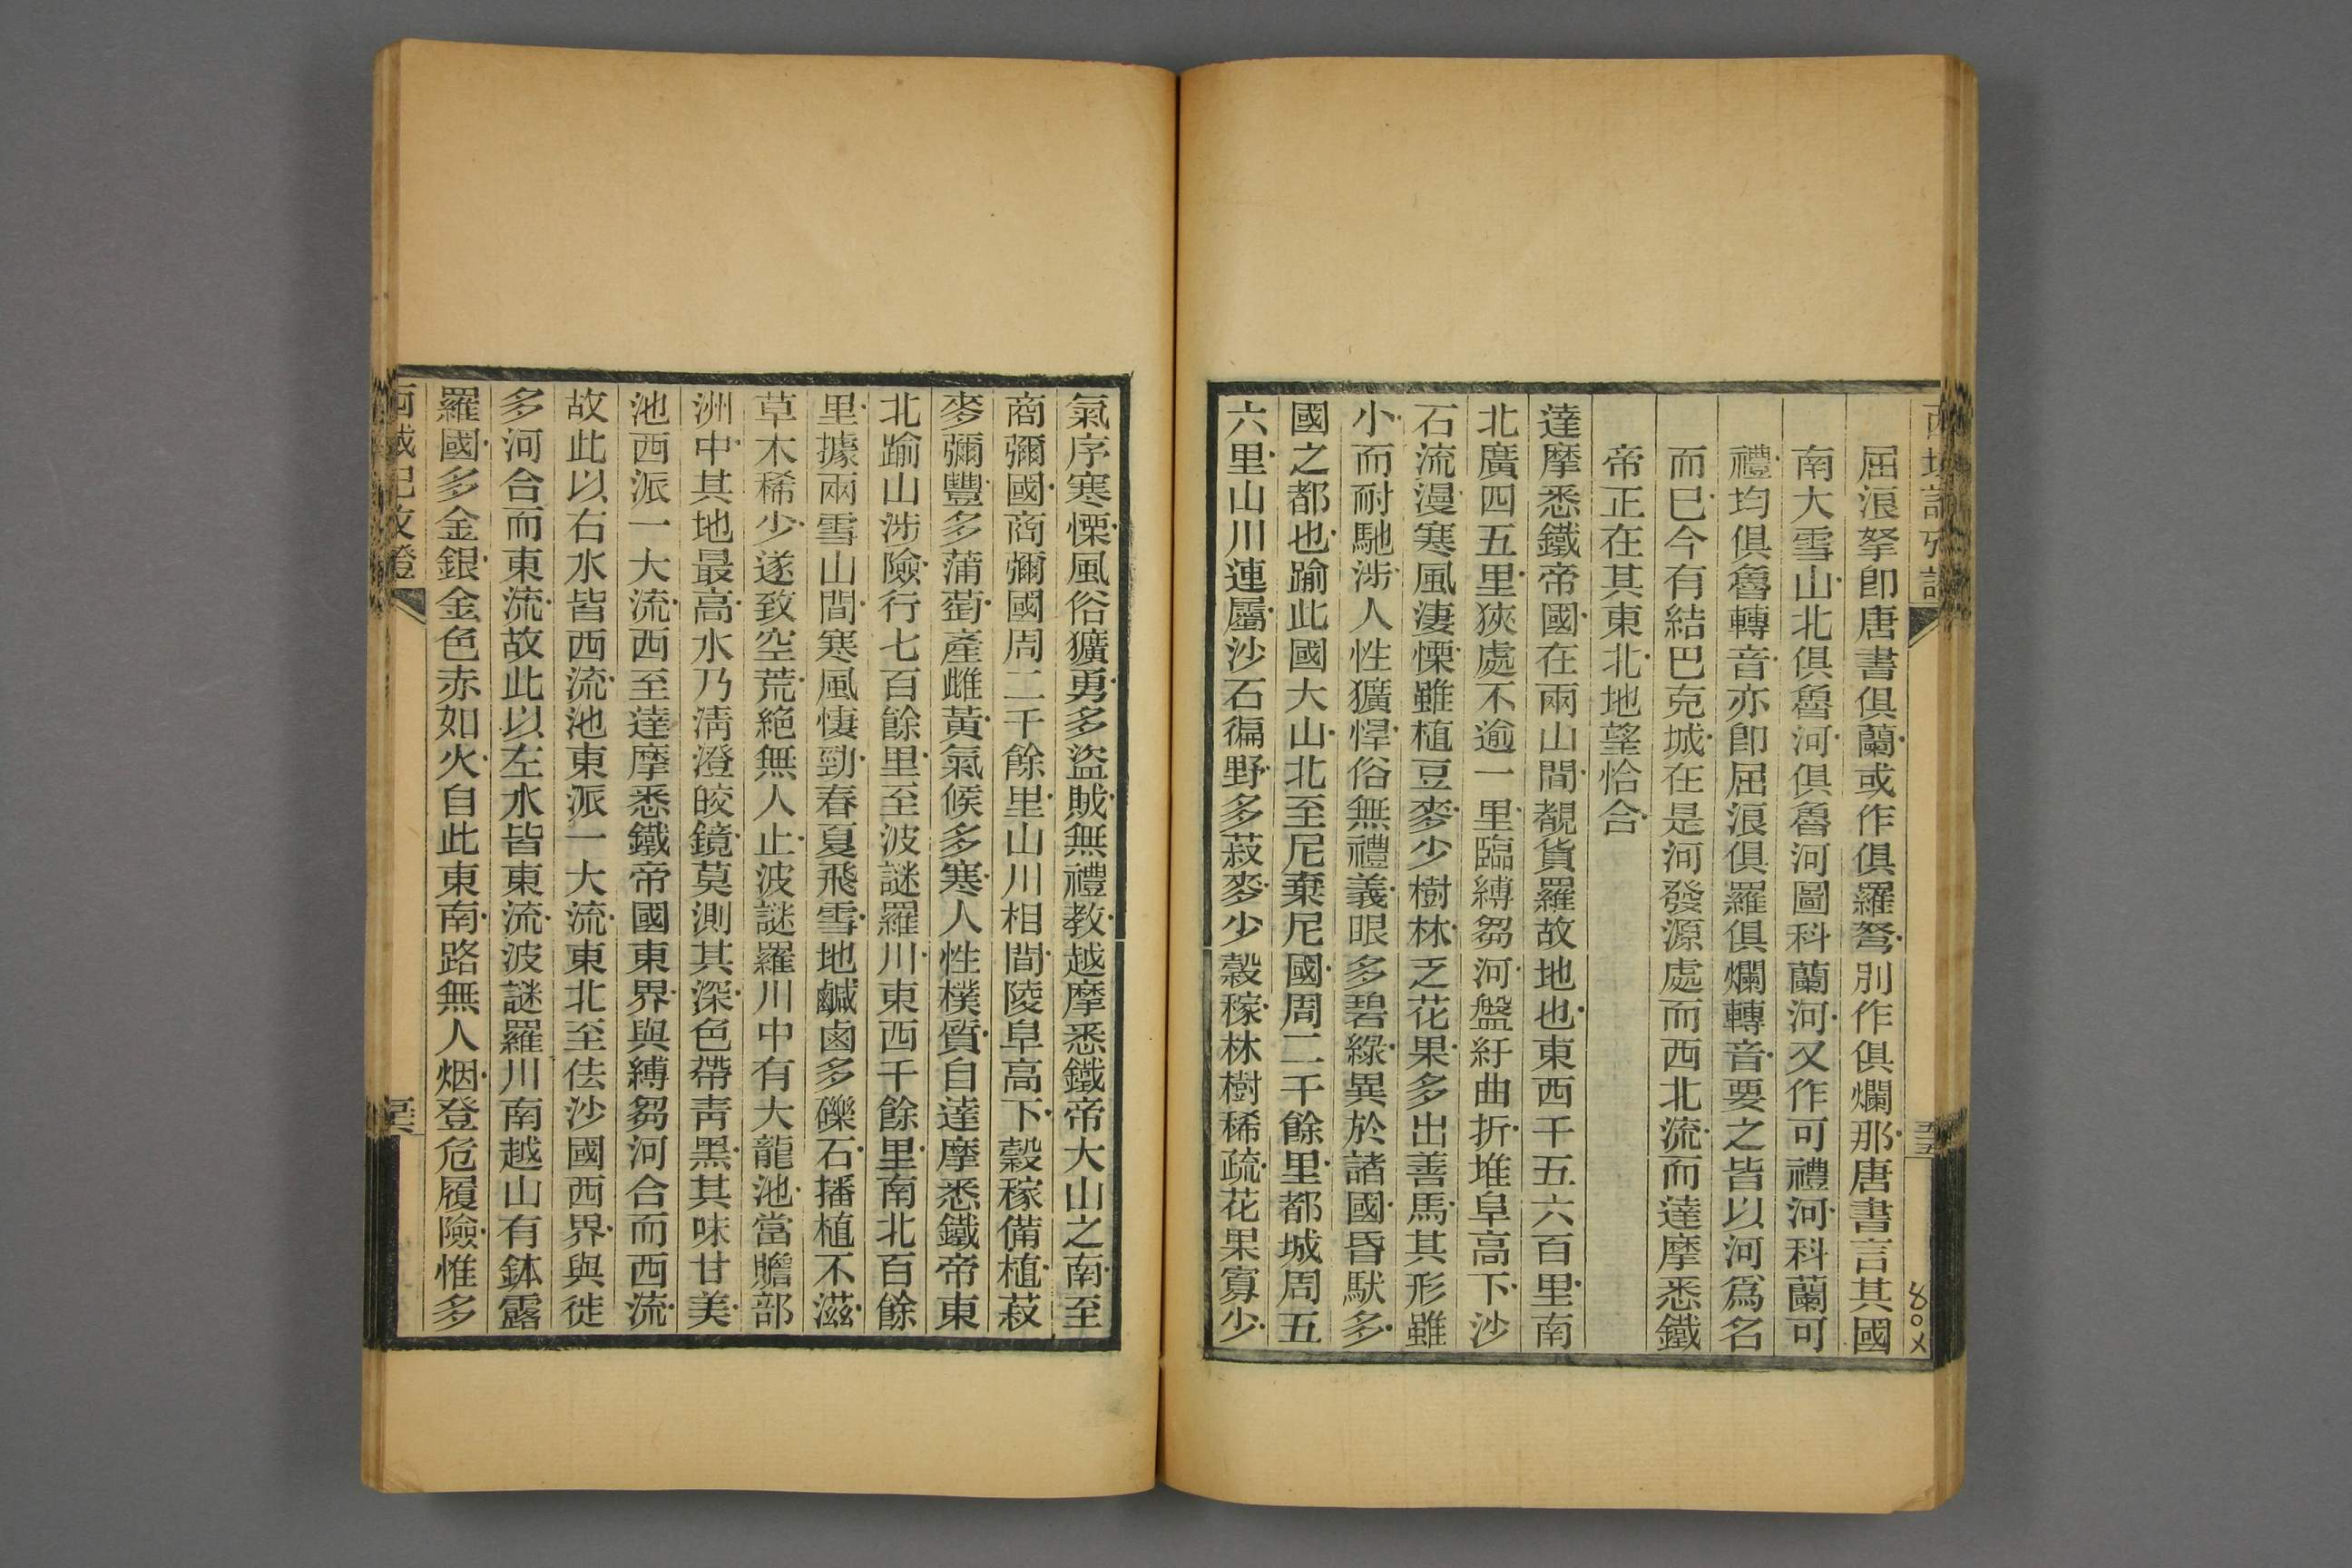 屈浪拏卽唐書俱蘭或作俱羅弩別作俱爛那唐書言其國
南大雪山北俱魯河俱魯河圖科蘭河又作可禮河科蘭可
禮均俱魯轉音亦卽屈浪俱羅俱爛轉音要之皆以河爲名
而巳今有結巴克城在是河發源處而西北流而達摩悉鐵
帝正在其東北地望恰合
達摩悉鐵帝國在兩山間覩貨羅故地也東西千五六百里南
北廣四五里狹處不逾一里臨縛芻河盤紆曲折堆阜高下沙
石流漫寒風淒慄雖植豆麥少樹林乏花果多出善馬其形雖
小而耐馳涉人性獷悍俗無禮義眼多碧綠異於諸國昏馱多
國之都也踰此國大山北至尼棄尼國周二千餘里都城周五
六里山川連屬沙石徧野多菽麥少穀稼林樹稀疏花果寡少
五五
80x
氣序寒慄風俗獷勇多盜賊無禮教越摩悉鐵帝大山之南至
商彌國商彌國周二千餘里山川相間陵阜高下穀稼備植菽
麥彌豐多蒲萄產雌黃氣候多寒人性樸質自達摩悉鐵帝東
北踰山涉險行七百餘里至波謎羅川東西千餘里南北百餘
里據兩雪山間寒風悽勁春夏飛雪地鹹鹵多礫石播植不滋
草木稀少遂致空荒絶無人止波謎羅川中有大龍池當贍部
洲中其地最高水乃淸澄皎鏡莫測其深色帶靑黑其味甘美
池西派一大流西至達摩悉鐵帝國東界與縛芻河合而西流
故此以右水皆西流池東派一大流東北至佉沙國西界與徙
多河合而東流故此以左水皆東流波謎羅川南越山有鉢露
羅國多金銀金色赤如火自此東南路無人烟登危履險惟多
西域記攷證